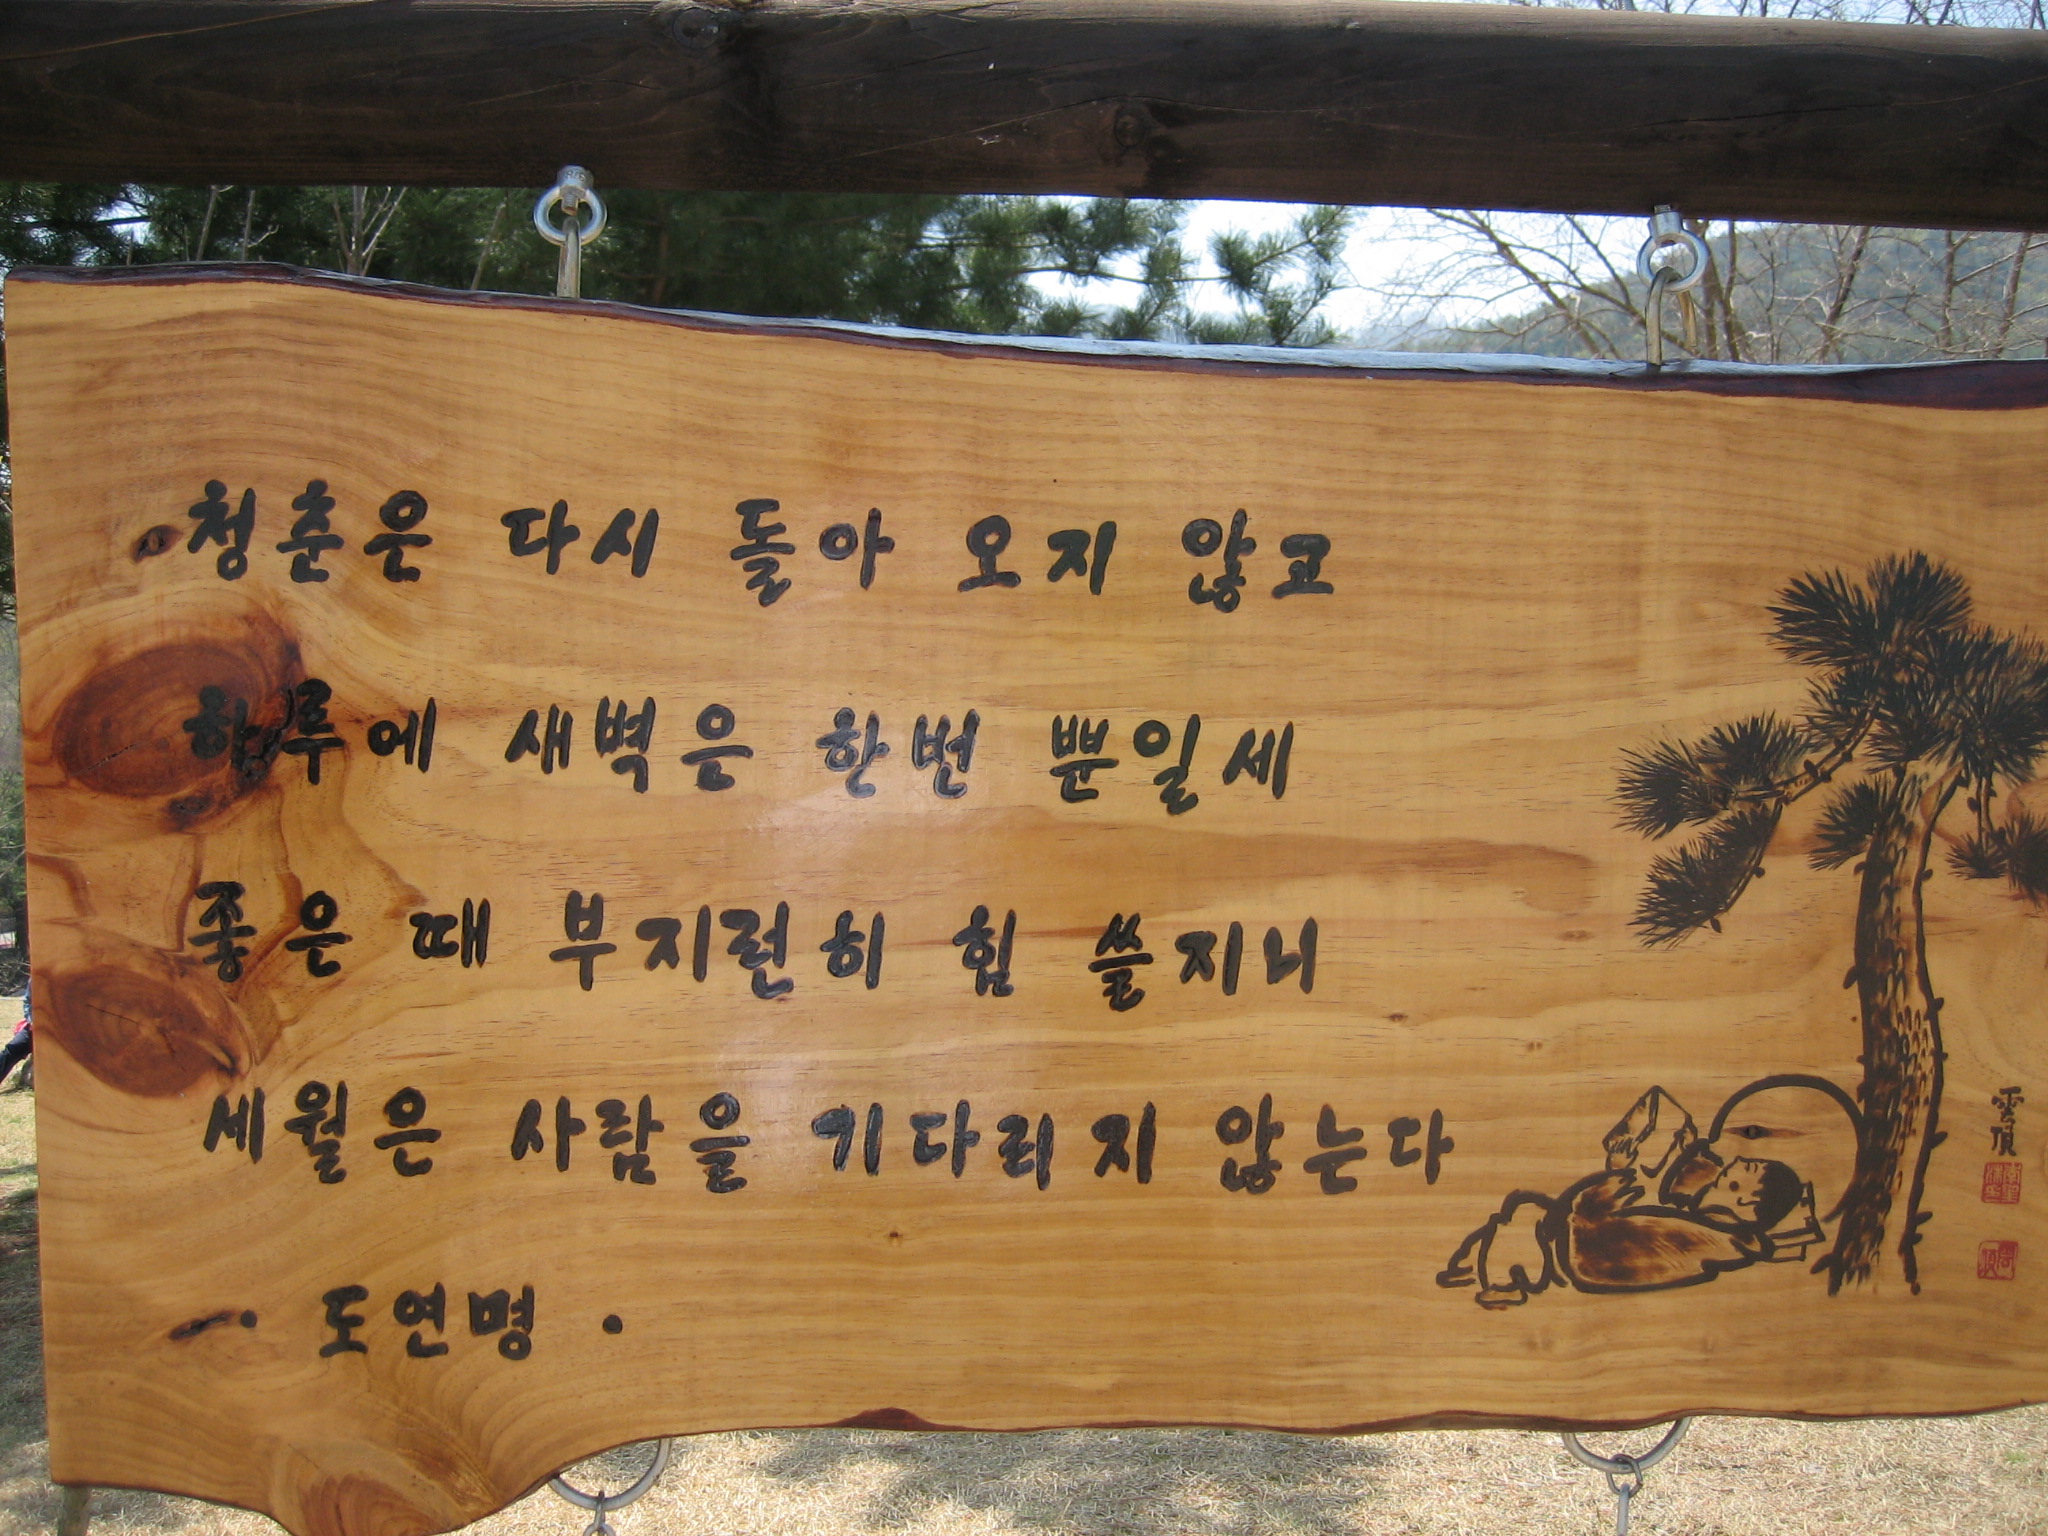 청춘은 다시 돌아 오지 않고
하루에 새벽은 한번 뿐일세
좋은 때 부지런히 힘 쓸지니
세월은 사람을 기다리지 않는다
· 도연명 ·
雲頂